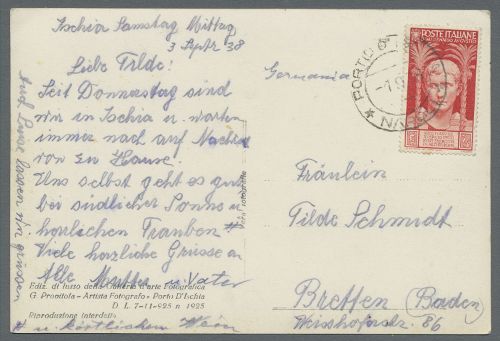 Ischia Samstag Mittag
3 Septr 38
Liebe Tilde!
Seit Donnerstag sind
wir in Ischia u. warten
immer noch auf Nachr.
von zu Hause.
Uns selbst geht es gut
bei südlicher Sonne u
herrlichen Trauben #
Viele herzliche Grüsse an
Alle Mutter u. Vater
# u. köstlichem Wein
Auch Luise lassen wir grüssen
Ediz. di lusso della Galleria d'arte Fotografica
G. Prontiola - Artista Fotografo - Porto D'Ischia
D. L. 7-11-925 n 1925
Riproduzione interdetta
Vera Fotografia
Germania
PORTO D'
NAPOLI
POSTE ITALIANE
Fräulein
Tilde Schmidt
Bretten (Baden)
Weisshoferstr. 86